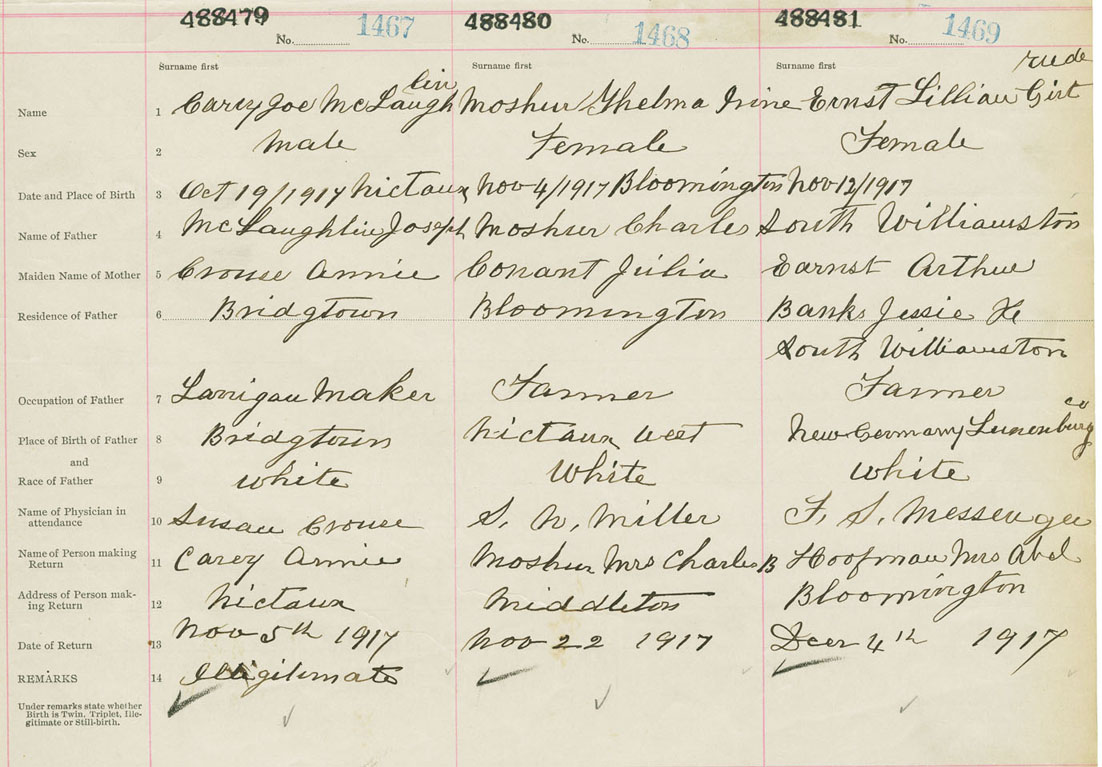 488479 488480 488481
No. 1467 No. 1468 No. 1469
Surname first Surname first Surname first
Name 1 Carey Joe McLaughlin Moshur Thelma Irine Ernst Lillian Girtrude
Sex 2 Male Female Female
Date and Place of Birth 3 Oct 19/1917 Nictaux Nov 4/1917 Bloomington Nov 12/1917
Name of Father 4 McLaughlin Joseph Moshur Charles South Williamston
Maiden Name of Mother 5 Crouse Annie Conant Julia Earnst Arthur
Residence of Father 6 Bridgtown Bloomington Banks Jessie
South Williamston
Occupation of Father 7 Larrigan Maker Farmer Farmer
Place of Birth of Father 8 Bridgtown Nictaux West New Germany Lunenburg co
and
Race of Father 9 White White White
Name of Physician in
attendance 10 Susan Crouse S. N. Miller F. S. Messenger
Name of Person making
Return 11 Carey Annie Moshur Mrs Charles B Hoofman Mrs Abel
Address of Person mak-
ing Return 12 Nictaux Middleton Bloomington
Date of Return 13 Nov 5th 1917 Nov 22 1917 4th 1917
REMARKS 14 Illigitimate
Under remarks state whether
Birth is Twin, Triplet, Ille-
gitimate or Still-birth.